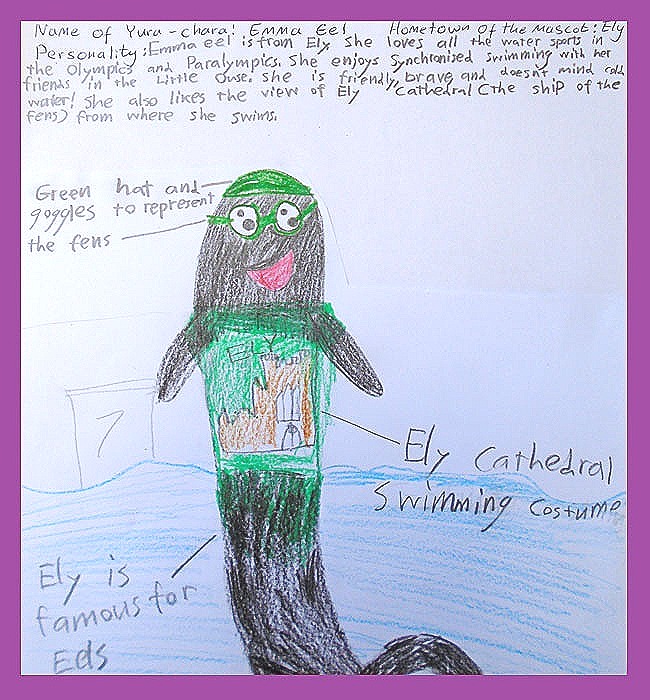 Name of Yuru-chara: Emma Eel Hometown of the Mascot: Ely
Personality: Emma eel is from Ely she loves all the water sports in
the Olympics and Paralympics. She enjoys Synchronised swimming with her
friends in the Little Ouse. she is friendly, brave and doesn't mind cold
water! She also likes the view of Ely Cathedral (the ship of the
fens) from where she swims.
Green hat and
goggles to represent
the fens
ELY
7
Ely Cathedral
Swimming costume
Ely is
famous for
Eels